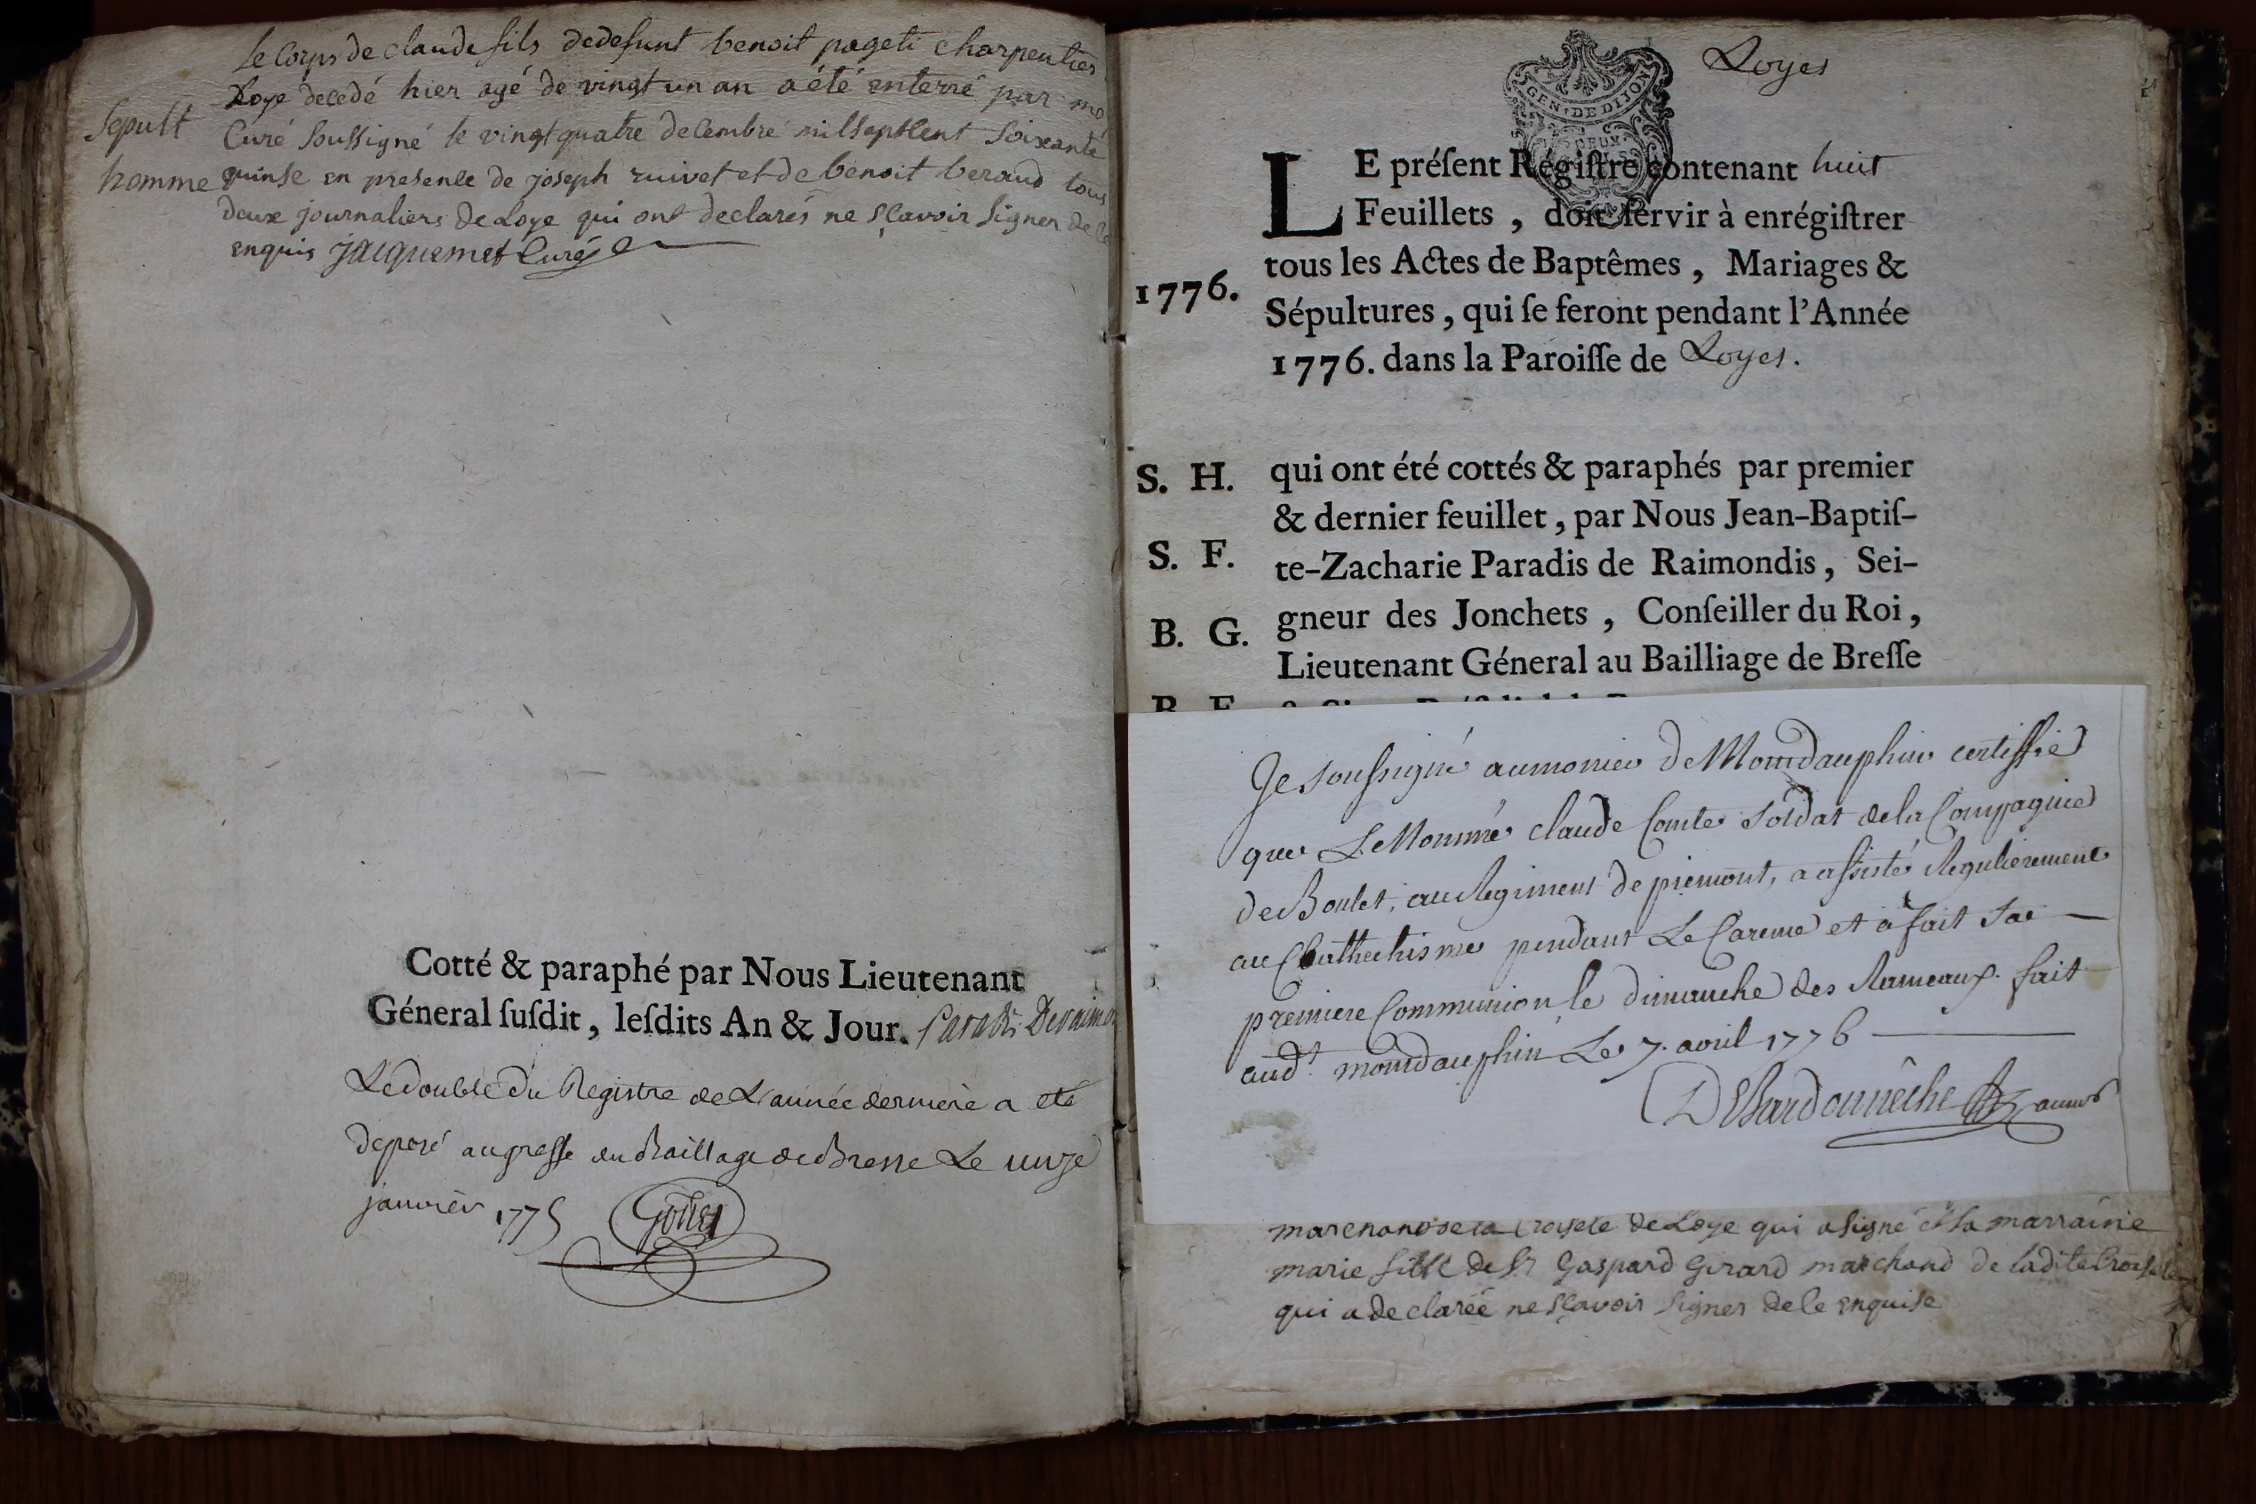 le Corps de claude fils dedefunt benoit pageti charpentier
Loye decedé hier agé de vingt un an a été enterré par mo
Sepult
Curé soussigné le vingt quatre decembre mil sept cent soixante
homme
quinse en presence de joseph ruivet et de benoit beraud tous
deux journaliers de Loye qui ont declarés ne sçavoir signer de ce
enquis jacquemet Curé
Cotté & paraphé par Nous Lieutenant
Géneral ſuſdit, leſdits An & Jour. Paradis Deraimo
Le double du Registre de L'année derniere a eté
deposé au greffe du Baillage de Bresse Le unze
janvier 1775
LOyes
GEN. DE DIJON
DEUX
LE préſent Régiſtre contenant huit
Feuillets, doit ſervir à enrégiſtrer
tous les Actes de Baptêmes, Mariages &
1776.
Sépultures, qui ſe feront pendant l'Année
1776. dans la Paroiſſe de Loyes.
S. H.
qui ont été cottés & paraphés par premier
& dernier feuillet, par Nous Jean-Baptiſ-
S. F.
te-Zacharie Paradis de Raimondis, Sei-
gneur des Jonchets, Conſeiller du Roi,
B. G.
Lieutenant Géneral au Bailliage de Breſſe
B. F.
Je soussigné aumonier de Montdauphin certiffie
que Le Nommé claude Comte soldat de la Compagnie
de Boulet, au Regiment de piemont, a assisté Regulierement
au Cathechisme pendant Le Careme et a fait sa
premiere Communion le dimanche des Rameaux. fait
aud.t montdauphin Le 7. avril 1776
DeBardonnêche aumr
marchand de la Croisete de Loye qui a signé et la marraine
marie fille de Sr Gaspard Girard marchand de ladite
qui a declarée ne sçavoir signer de ce enquise